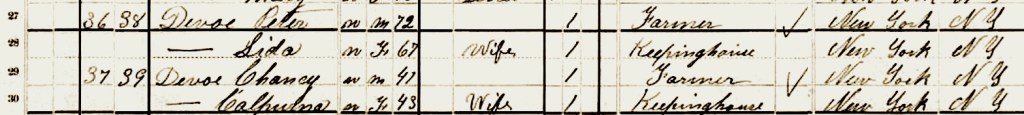 27 36 38 Devoe Peter w m 72 1 Farmer ✓ New York N Y
28 — Lida w F 67 Wife 1 Keepinghouse New York N Y
29 37 39 Devoe Chancy w m 41 1 Farmer ✓ New York N Y
30 — Calphurna w F 43 Wife 1 Keepinghouse New York N Y